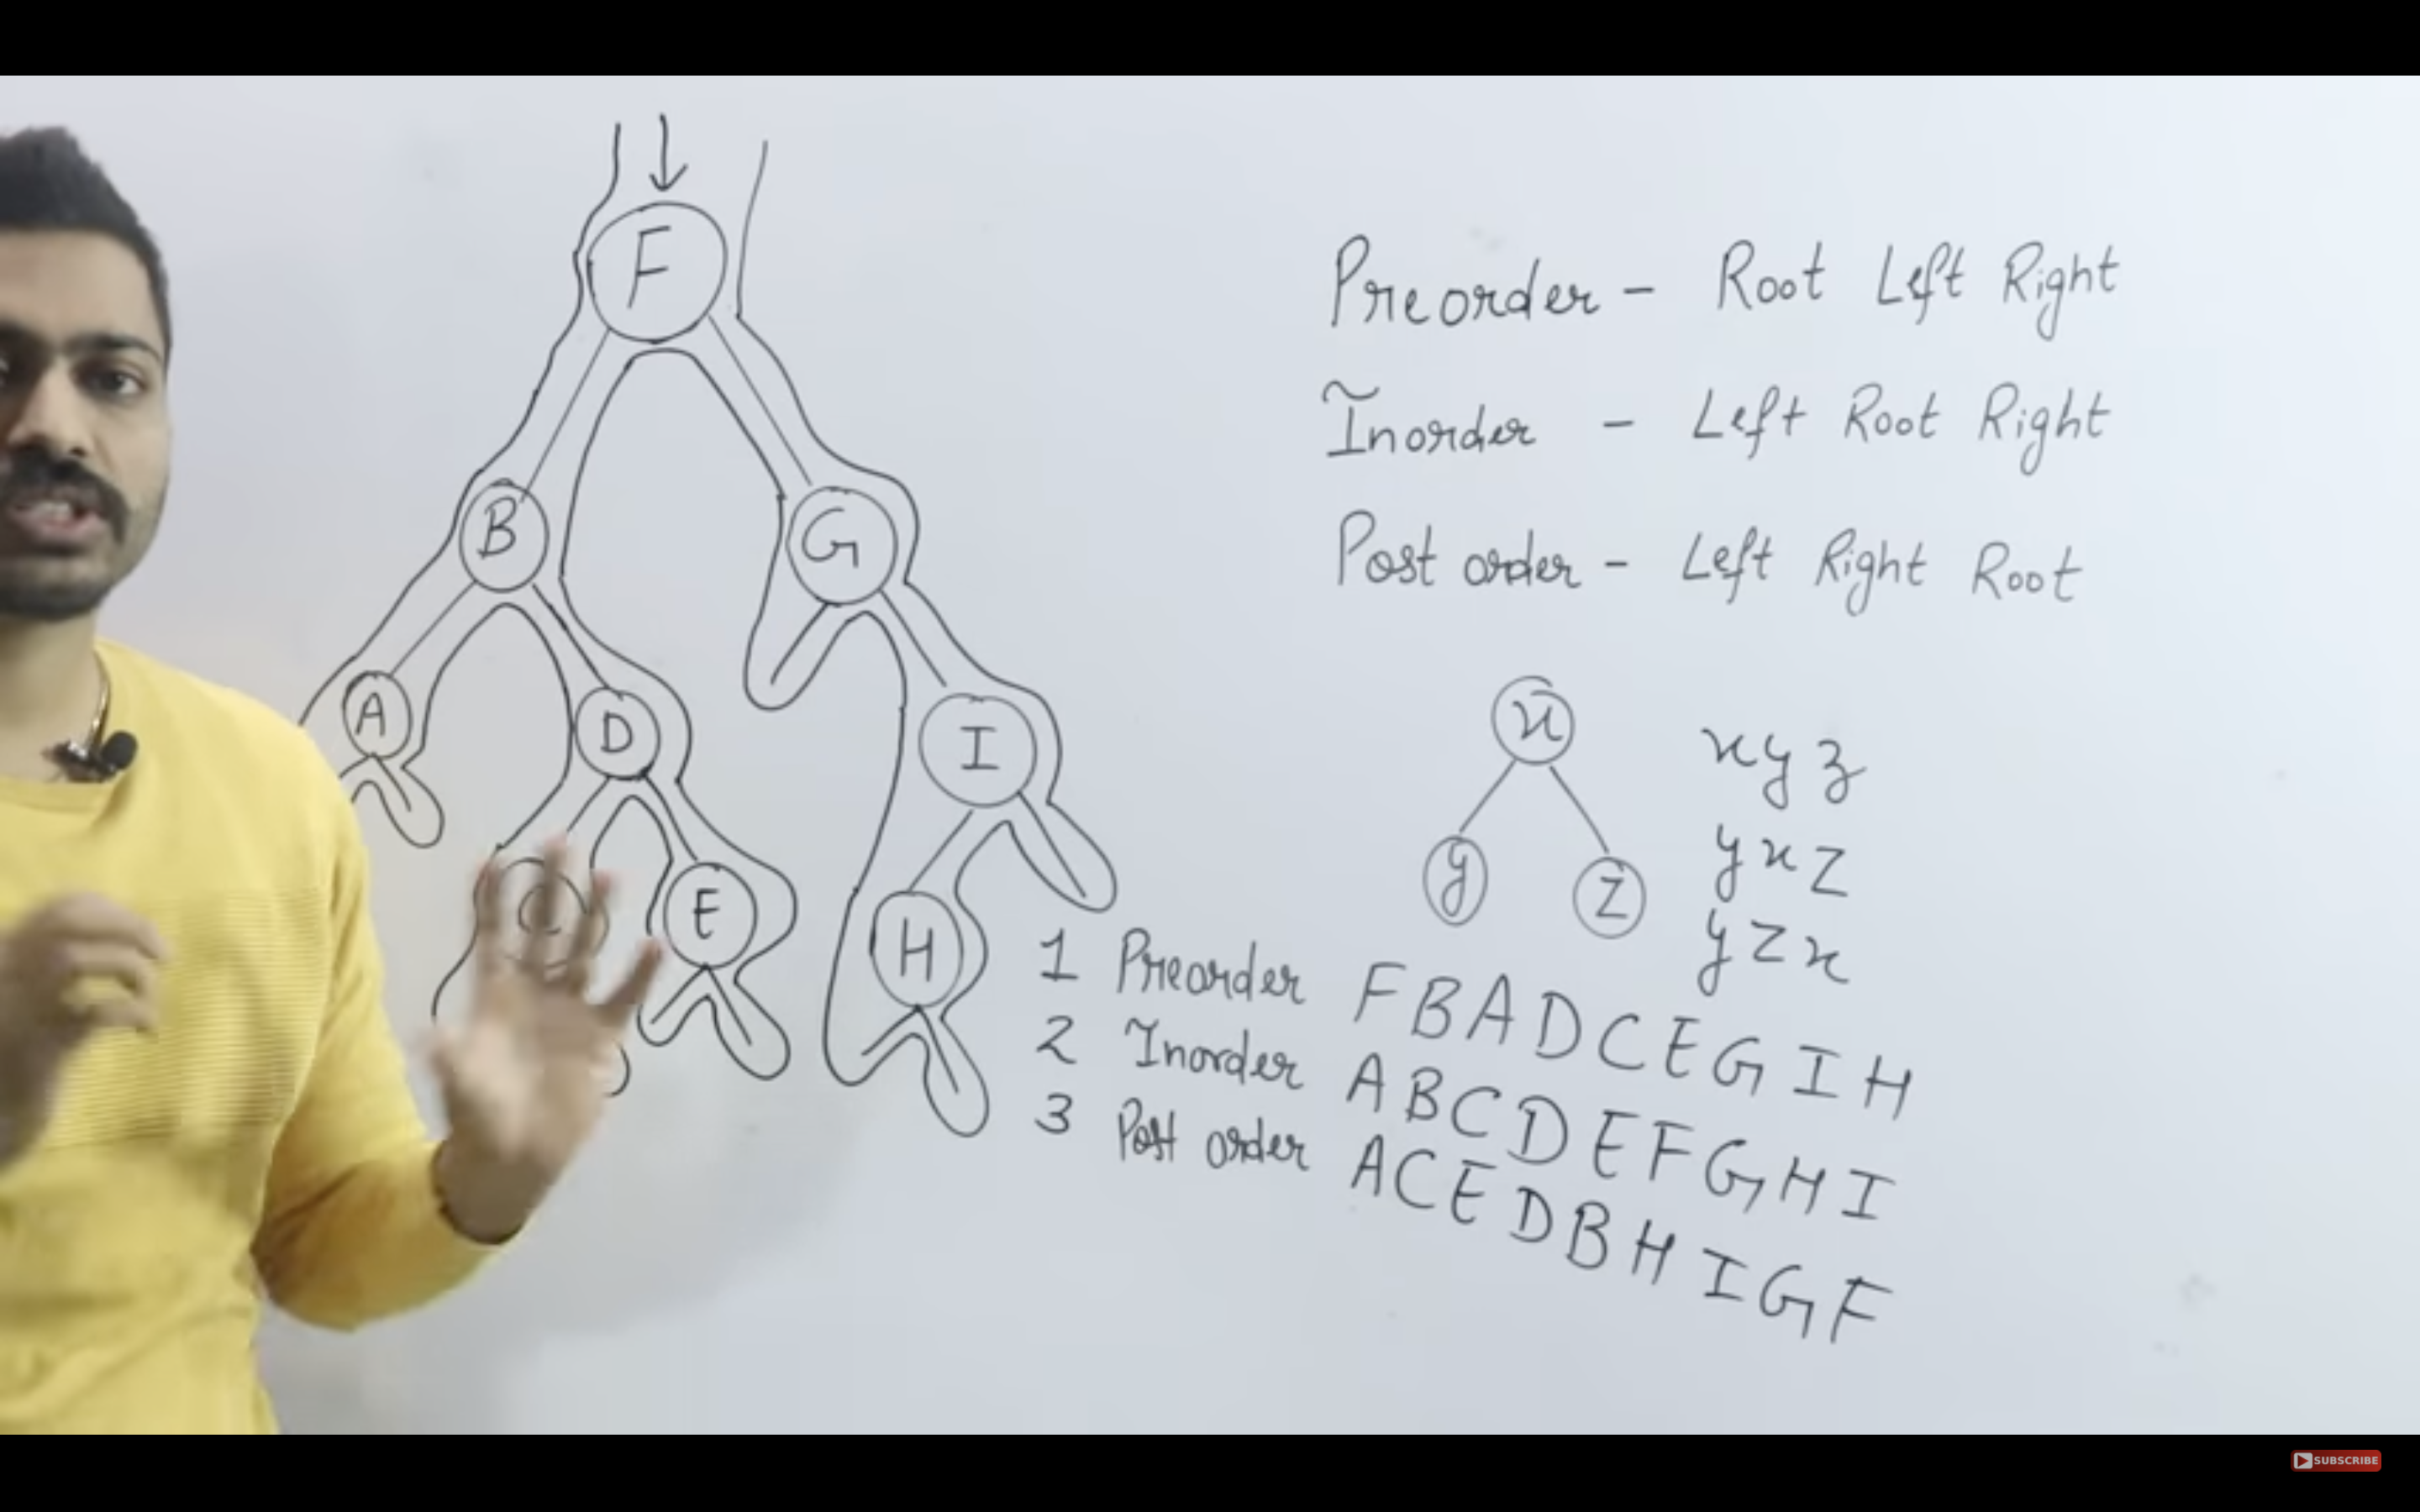 F
B
G
A
D
I
C
E
H
Preorder - Root Left Right
Inorder - Left Root Right
Post order - Left Right Root
x
y
z
x y z
y x z
y z x
1 Preorder F B A D C E G I H
2 Inorder A B C D E F G H I
3 Post order A C E D B H I G F
SUBSCRIBE